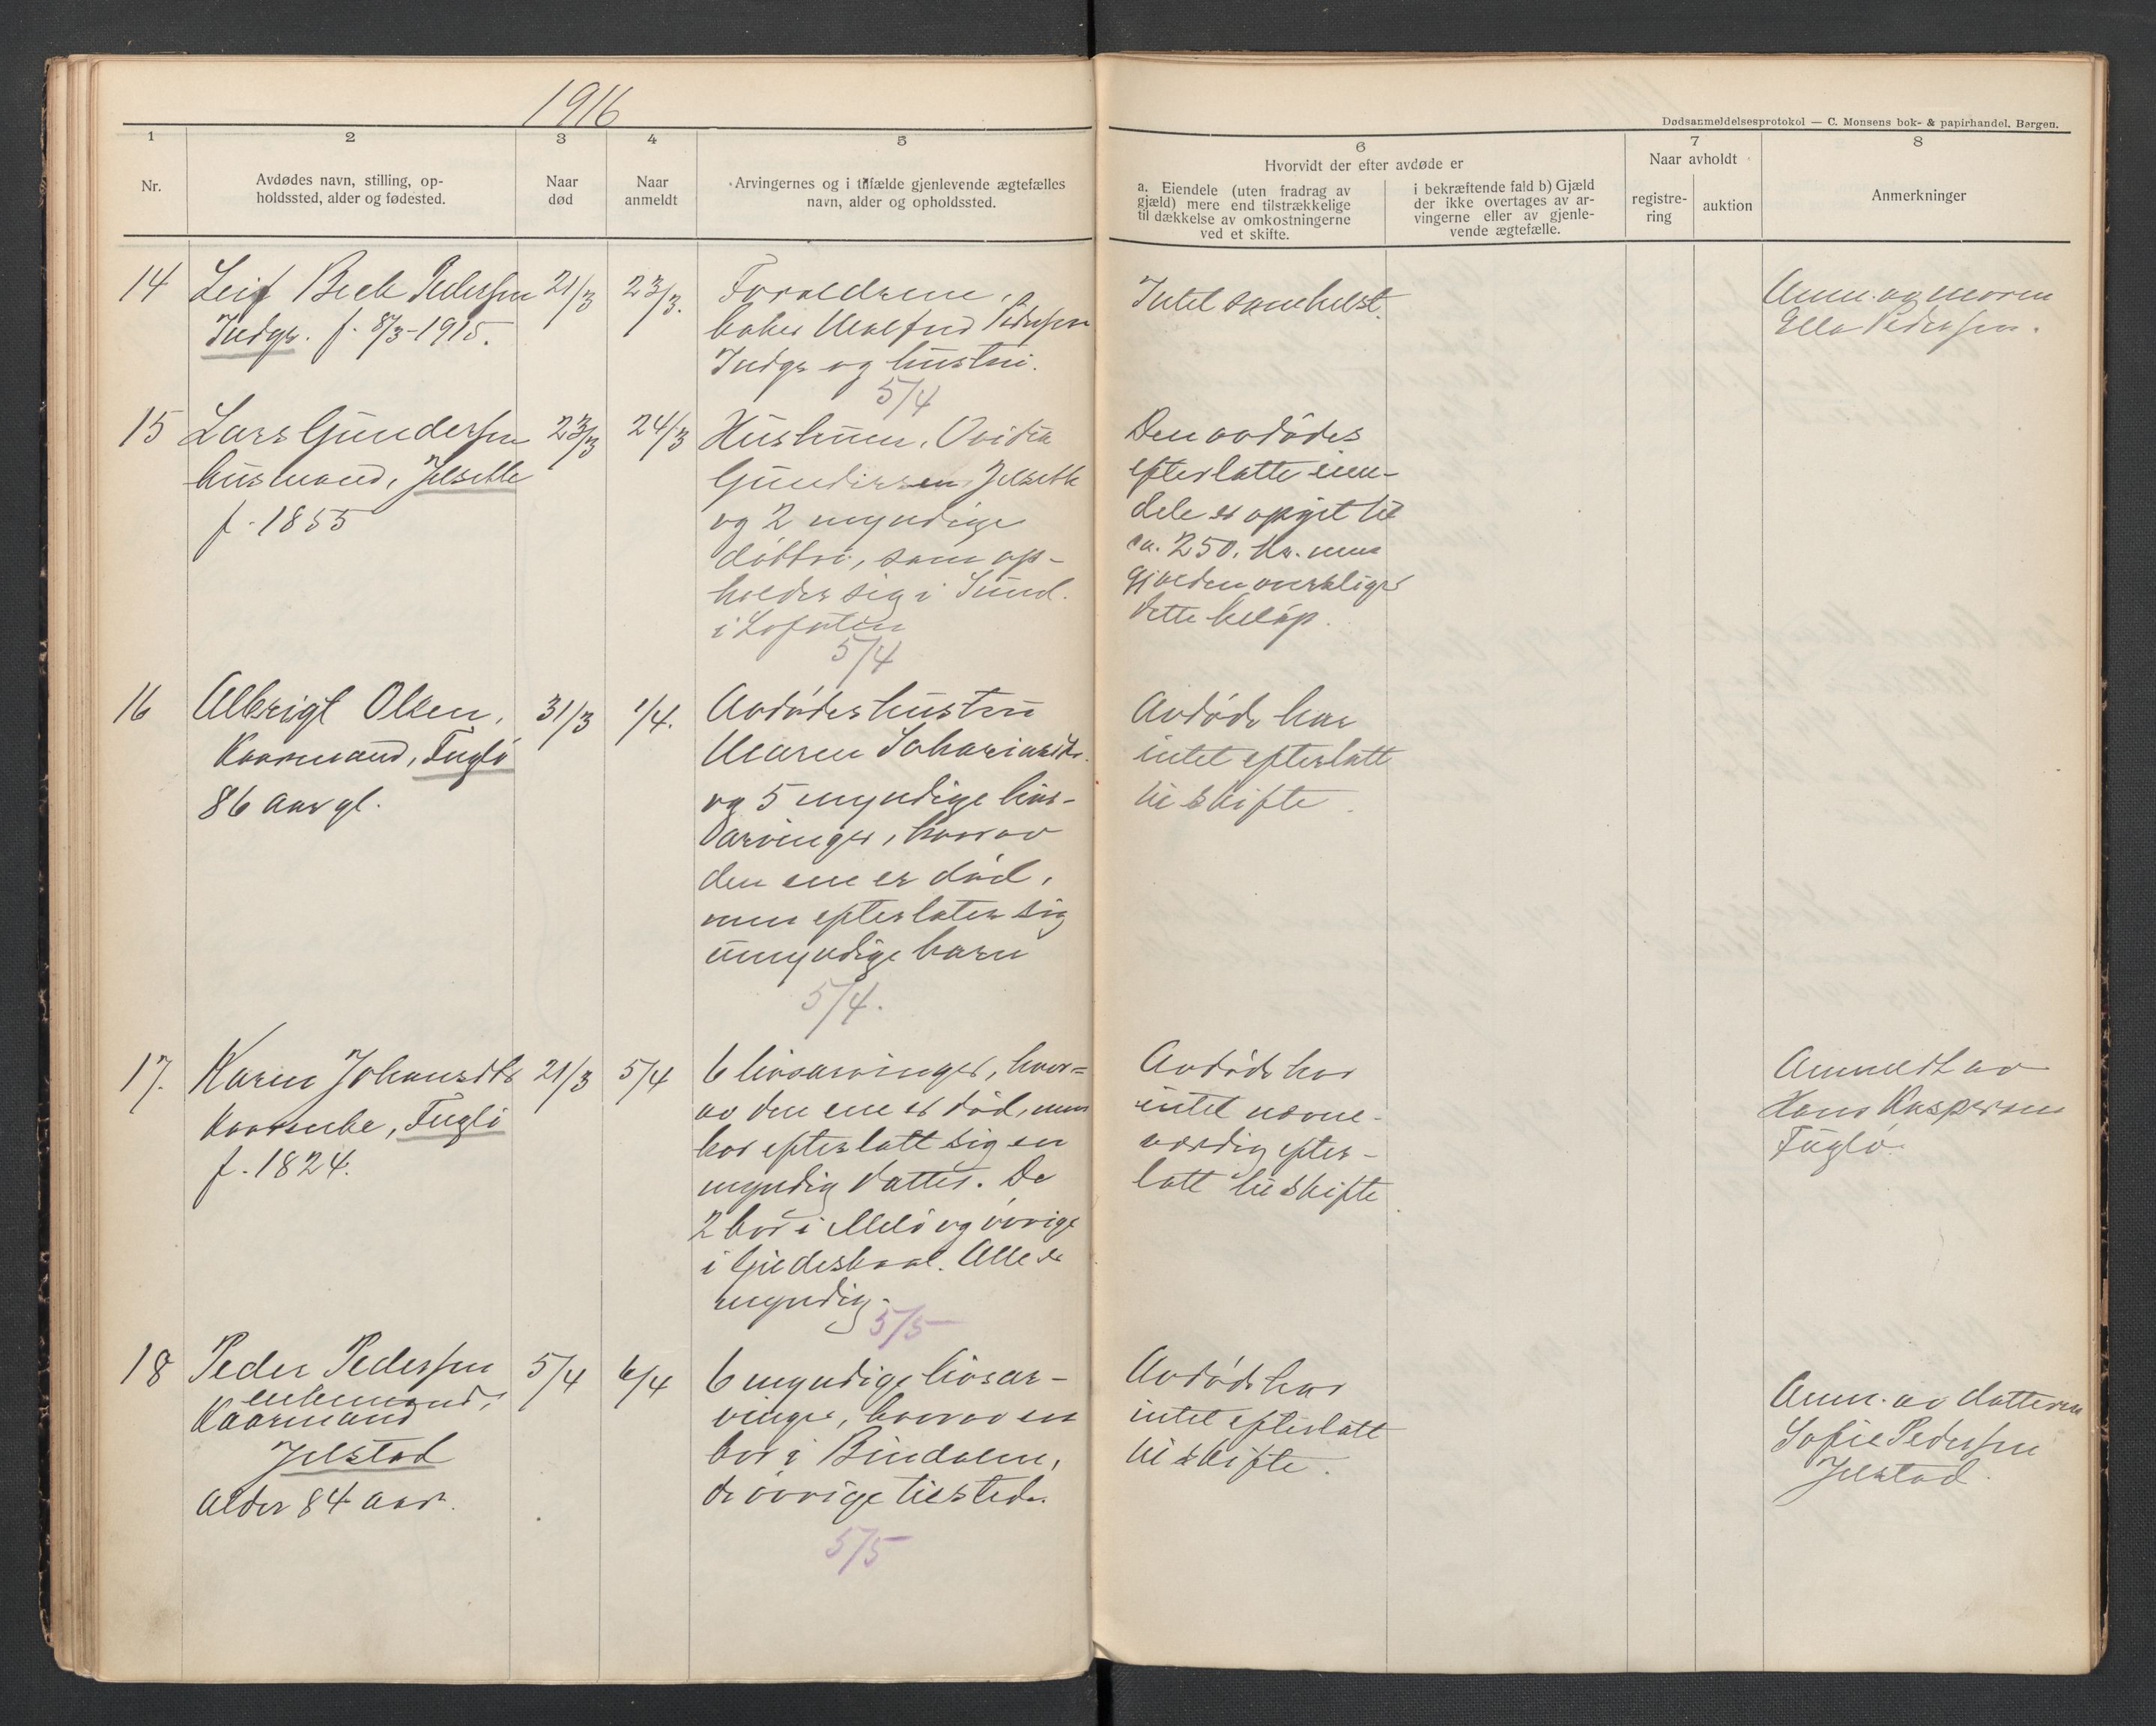 1916
Dødsanmeldelsesprotokol — C. Monsens bok- & papirhandel, Bergen.
1
2
3
4
5
6
7
8
Nr.
Avdødes navn, stilling, op-
holdssted, alder og fødested.
Naar
død
Naar
anmeldt
Arvingernes og i tilfælde gjenlevende ægtefælles
navn, alder og opholdssted.
Hvorvidt der efter avdøde er
a. Eiendele (uten fradrag av
gjæld) mere end tilstrækkelige
til dækkelse av omkostningerne
ved et skifte.
i bekræftende fald b) Gjæld
der ikke overtages av ar-
vingerne eller av gjenle-
vende ægtefælle.
Naar avholdt
registre-
ring
auktion
Anmerkninger
14
Leif Beck Pedersen
Indyr. f. 8/3-1915.
21/3
23/3.
Forældrene,
baker Pedersen
Indyr og hustru.
5/4
Intet somhelst.
Anm. av moren
Ella Pedersen.
15
Lars Gundersen
husmand, Jelsette
f. 1855
23/3
24/3
Hustruen,
Gundersen, Jelsette
og 2 myndige
døttre, som op-
holder sig i Sund.
i Lofoten
5/4
Den avdødes
efterlatte eien-
dele er opgit til
ca. 250. kr. men
gjælden overstiger
dette beløp.
16
Albrigt Olsen,
Kaarmand, Fuglø
86 aar gl.
31/3
1/4.
Avdødes hustru
Maren Sakariasdtr.
og 5 myndige livs-
arvinger, hvorav
den ene er død,
men efterlater sig
umyndige barn
5/4.
Avdøde har
intet efterlatt
til skifte.
17.
Karen Johansdtr
Kaarenke, Fuglø
f. 1824.
21/3
5/4
6 livsarvinger, hvor=
av den ene er død, men
har efterlatt sig en
myndig datter. De
2 bor i Melø og øvrige
i Gildeskaal. Alle er
myndig.
5/5
Avdøde har
intet nævne-
værdig efter-
latt til skifte.
Anmeldt av
Hans Kaspersen
Fuglø.
18
Peder Pedersen
enkemand,
Kaarmand
Jelstad
Alder 84 aar.
5/4
6/4
6 myndige livsar-
vinger, hvorav en
bor i Bindalen,
de øvrige tilstede.
5/5
Avdøde har
intet efterlatt
til skifte.
Anm. av datteren
Sofie Pedersen
Jelstad.